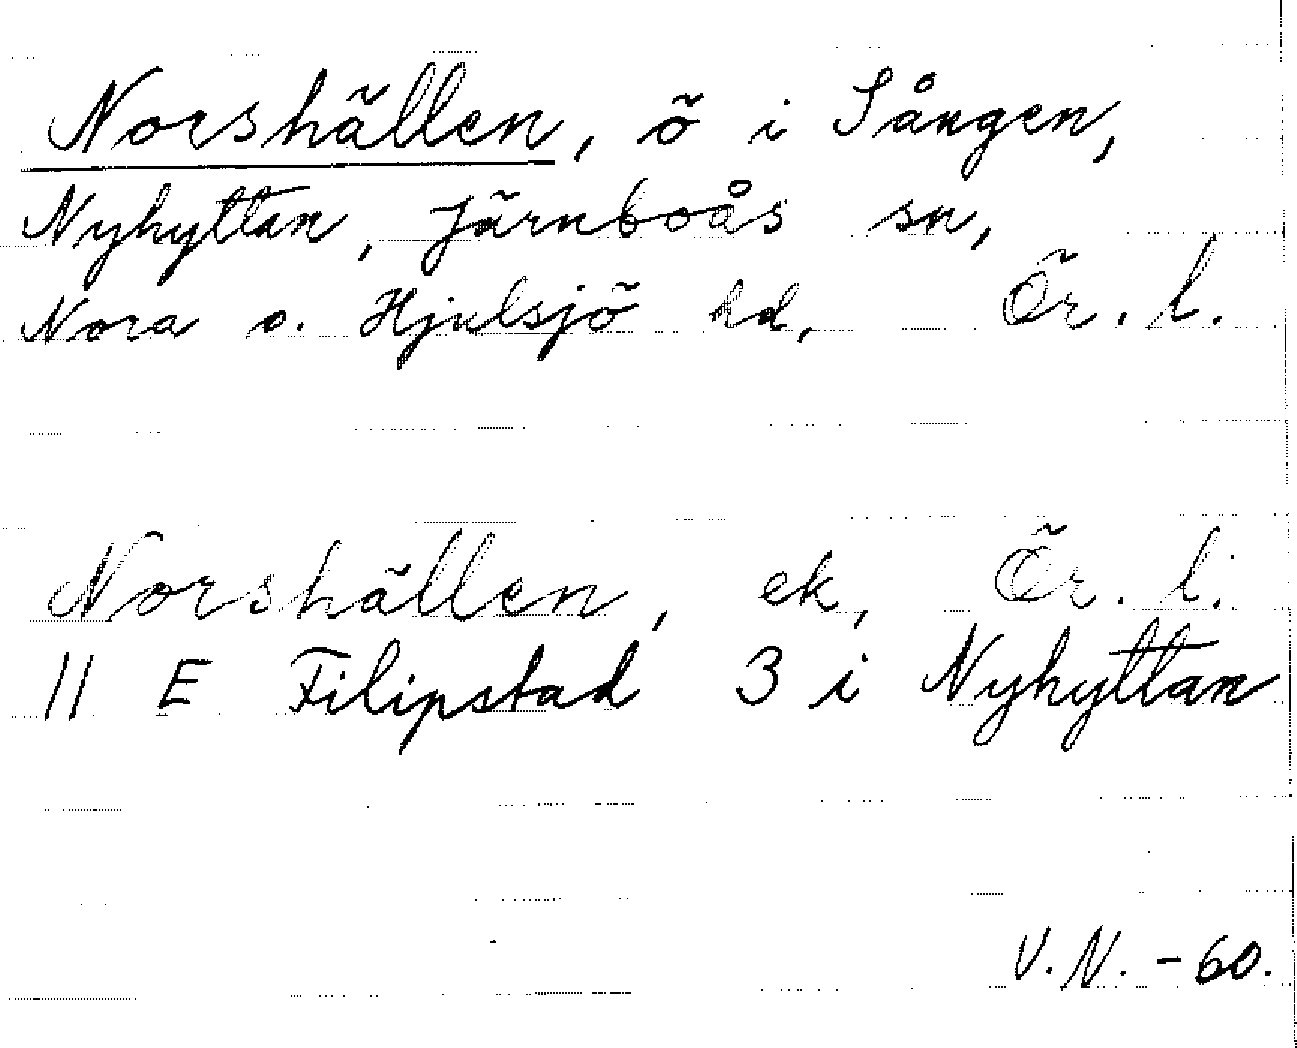 Norshällen, ö i Sången,
Nyhyttan, Järnboås sn,
Nora o. Hjulsjö hd, Ör. l.
Norshällen, ek, Ör. l.
11 E Filipstad 3 i Nyhyttan
V. N. - 60.